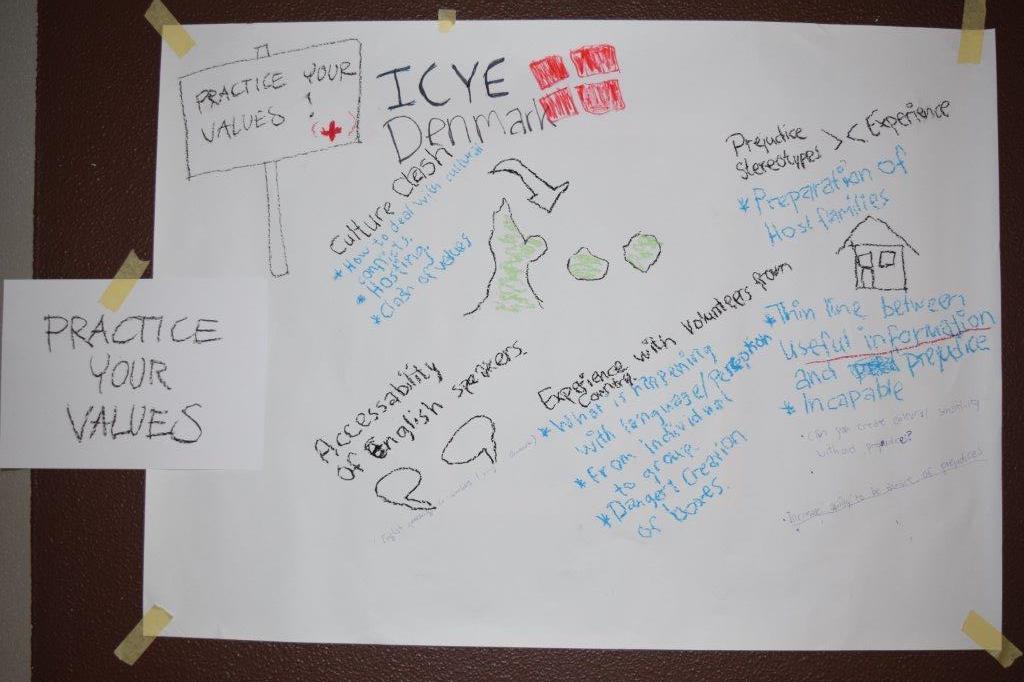 PRACTICE YOUR
VALUES !
ICYE
Denmark
Culture Clash
* How to deal with cultural
conflicts.
* Hosting.
* Clash of values
Prejudice
stereotypes > < Experience
* Preparation of
Host families
* Thin line between
useful information
and prejudice
* Incapable
• Can you create cultural sensitivity
without prejudice?
• Increase ability to be aware of prejudices
Experience with volunteers from
Country
* What is happening
with language/Perception
* From individual
to group.
* Danger! Creation
of boxes.
Accessability
of English speakers.
PRACTICE
YOUR
VALUES